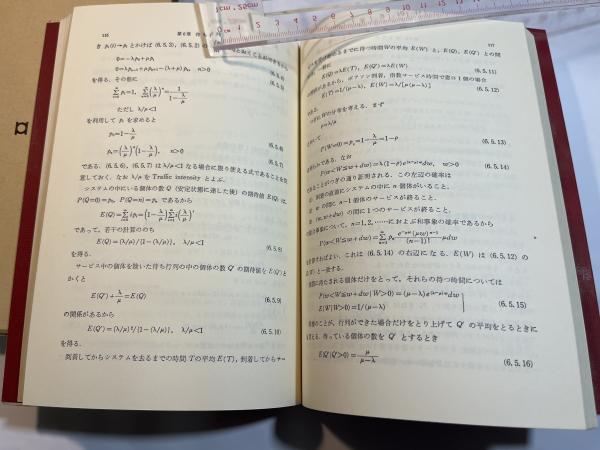 116
第6章
き p₀(t)→p₀ とかけば (6.5.3), (6.5.2) の
0=-λp₀+μp₁
0=λpₙ₋₁+μpₙ₊₁-(λ+μ)pₙ, n>0
(6.5.4)
(6.5.5)
を得る. その他に
∑pᵢ=1, ∑(λ/μ)ⁿ=1/(1-λ/μ)
ただし λ/μ<1
を利用して p₀ を求めると
p₀=1-λ/μ
(6.5.6)
pₙ=(λ/μ)ⁿ(1-λ/μ), n>0
(6.5.7)
である. (6.5.6), (6.5.7) は λ/μ<1 なる場合に限り使える式であることを注
意しておく. なお λ/μ を Traffic intensity とよぶ.
システムの中にいる個体の数 Q (安定状態に達した後) の期待値 E(Q) は,
P(Q=0)=p₀, P(Q=n)=pₙ であるから
E(Q)=∑ipᵢ=(1-λ/μ)∑i(λ/μ)ⁱ
であって, 若干の計算ののち
E(Q)=(λ/μ)/{1-(λ/μ)}, λ/μ<1
(6.5.8)
を得る.
サービス中の個体を除いた待ち行列の中の個体の数 Q' の期待値を E(Q') と
かくと
E(Q')+λ/μ=E(Q)
(6.5.9)
の関係があるから
E(Q')=(λ/μ)²/{1-(λ/μ)}, λ/μ<1
(6.5.10)
を得る.
到着してからシステムを去るまでの時間 T の平均 E(T), 到着してからサー
117
までに待つ時間Wの平均 E(W) と, E(Q), E(Q') との間
E(Q)=λE(T), E(Q')=λE(W)
(6.5.11)
の関係があるから, ポアソン到着, 指数サービス時間で窓口1個の場合
E(T)=1/(μ-λ), E(W)=λ/{μ(μ-λ)}
(6.5.12)
である.
Wの分布を考える. まず
ρ=λ/μ
P(W=0)=p₀=1-λ/μ=1-ρ
(6.5.13)
である. なお
P(w<W≦w+dw)=λ(1-ρ)e^(λ-μ)w dw, w>0
(6.5.14)
であることがつぎの通り証明される. この左辺の確率は
到着の直前にシステムの中に n 個体がいること,
w の間に n-1 個体のサービスが終ること,
(w, w+dw) の間に1つのサービスが終ること,
の積事象について, n=1, 2, ……におよぶ和事象の確率であるから
P(w<W≦w+dw)=∑pₙ e^-μw(μw)ⁿ⁻¹/(n-1)! ・μdw
を計算すればよい. これは (6.5.14) の右辺になる. E(W) は (6.5.12) の
と一致する.
待たされる個体だけをとって, それらの待つ時間については
P(w<W≦w+dw|W>0)=(μ-λ)e^(λ-μ)w dw
E(W|W>0)=1/(μ-λ)
(6.5.15)
のことが, 行列ができた場合だけをとり上げて Q' の平均をとるときに
待っている個体の数を Q' とするとき
E(Q'|Q'>0)=μ/(μ-λ)
(6.5.16)